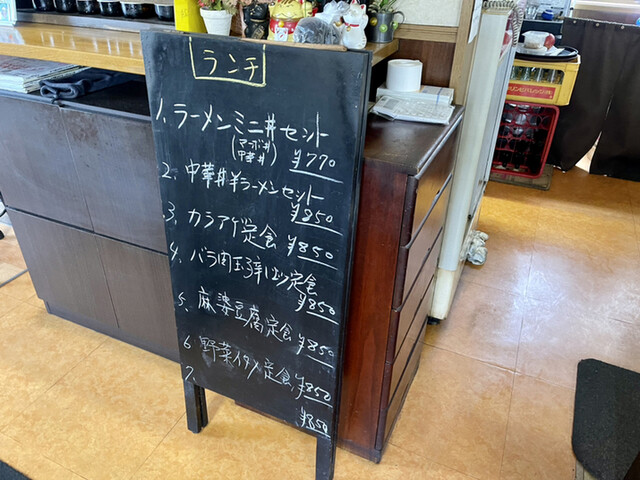 ランチ
1、ラーメンミニ丼セット
(マーボ丼
中華丼)
¥770
2、中華丼半ラーメンセット
¥850
3、カラアゲ定食
¥850
4、バラ肉玉子辛し炒め定食
¥850
5、麻婆豆腐定食
¥850
6 野菜イタメ定食
¥850
7、
¥850